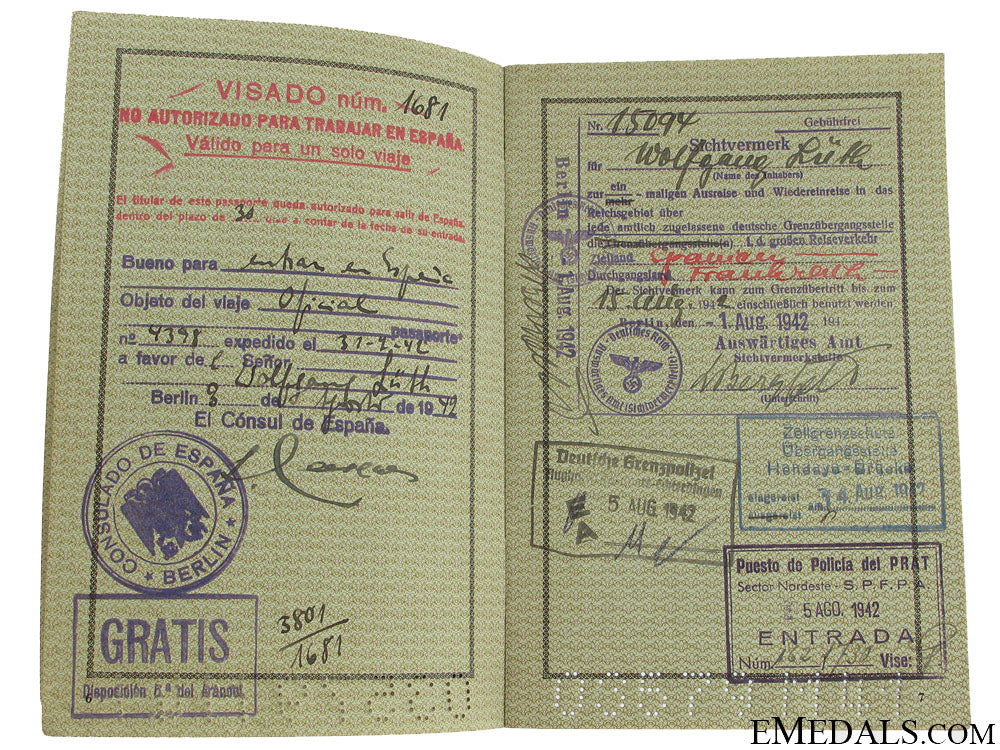 VISADO núm. 1681
NO AUTORIZADO PARA TRABAJAR EN ESPAÑA
Válido para un solo viaje
El titular de este pasaporte queda autorizado para salir de España,
dentro del plazo de 30 días a contar de la fecha de su entrada.
Bueno para entrar en España
Objeto del viaje Oficial
pasaporte
nº 4398 expedido el 31-7-42
a favor de l Señor
Wolfgang Lüth
Berlin 3 de Agosto de 1942
El Cónsul de España.
CONSULADO DE ESPAÑA
★ BERLIN ★
GRATIS
Disposición 6.ª del Arancel
3801
1681
6
Nr. 15094 Gebührfrei
Sichtvermerk
für Wolfgang Lüth
(Name des Inhabers)
zur ein
mehr - maligen Ausreise und Wiedereinreise in das
Reichsgebiet über
jede amtlich zugelassene deutsche Grenzübergangsstelle
die Grenzübergangsstelle(n) i. d. großen Reiseverkehr
Zielland Spanien
Durchgangsland Frankreich
Der Sichtvermerk kann zum Grenzübertritt bis zum
15. Aug. 1942 einschließlich benutzt werden
Berlin, den - 1. Aug. 1942 194
Auswärtiges Amt
Sichtvermerkstelle
(Unterschrift)
Berlin - 1. Aug. 1942
Deutsches Reich
Deutsche Grenzpolizei
5 AUG. 1942
E
A
Zollgrenzschutz
Übergangsstelle
Hendaye-Brücke
eingereist 14 Aug. 1942
ausgereist
Puesto de Policía del PRAT
Sector Nordeste - S.P.F.P.A.
5 AGO. 1942
ENTRADA
Núm. Vise:
7
EMEDALS.COM